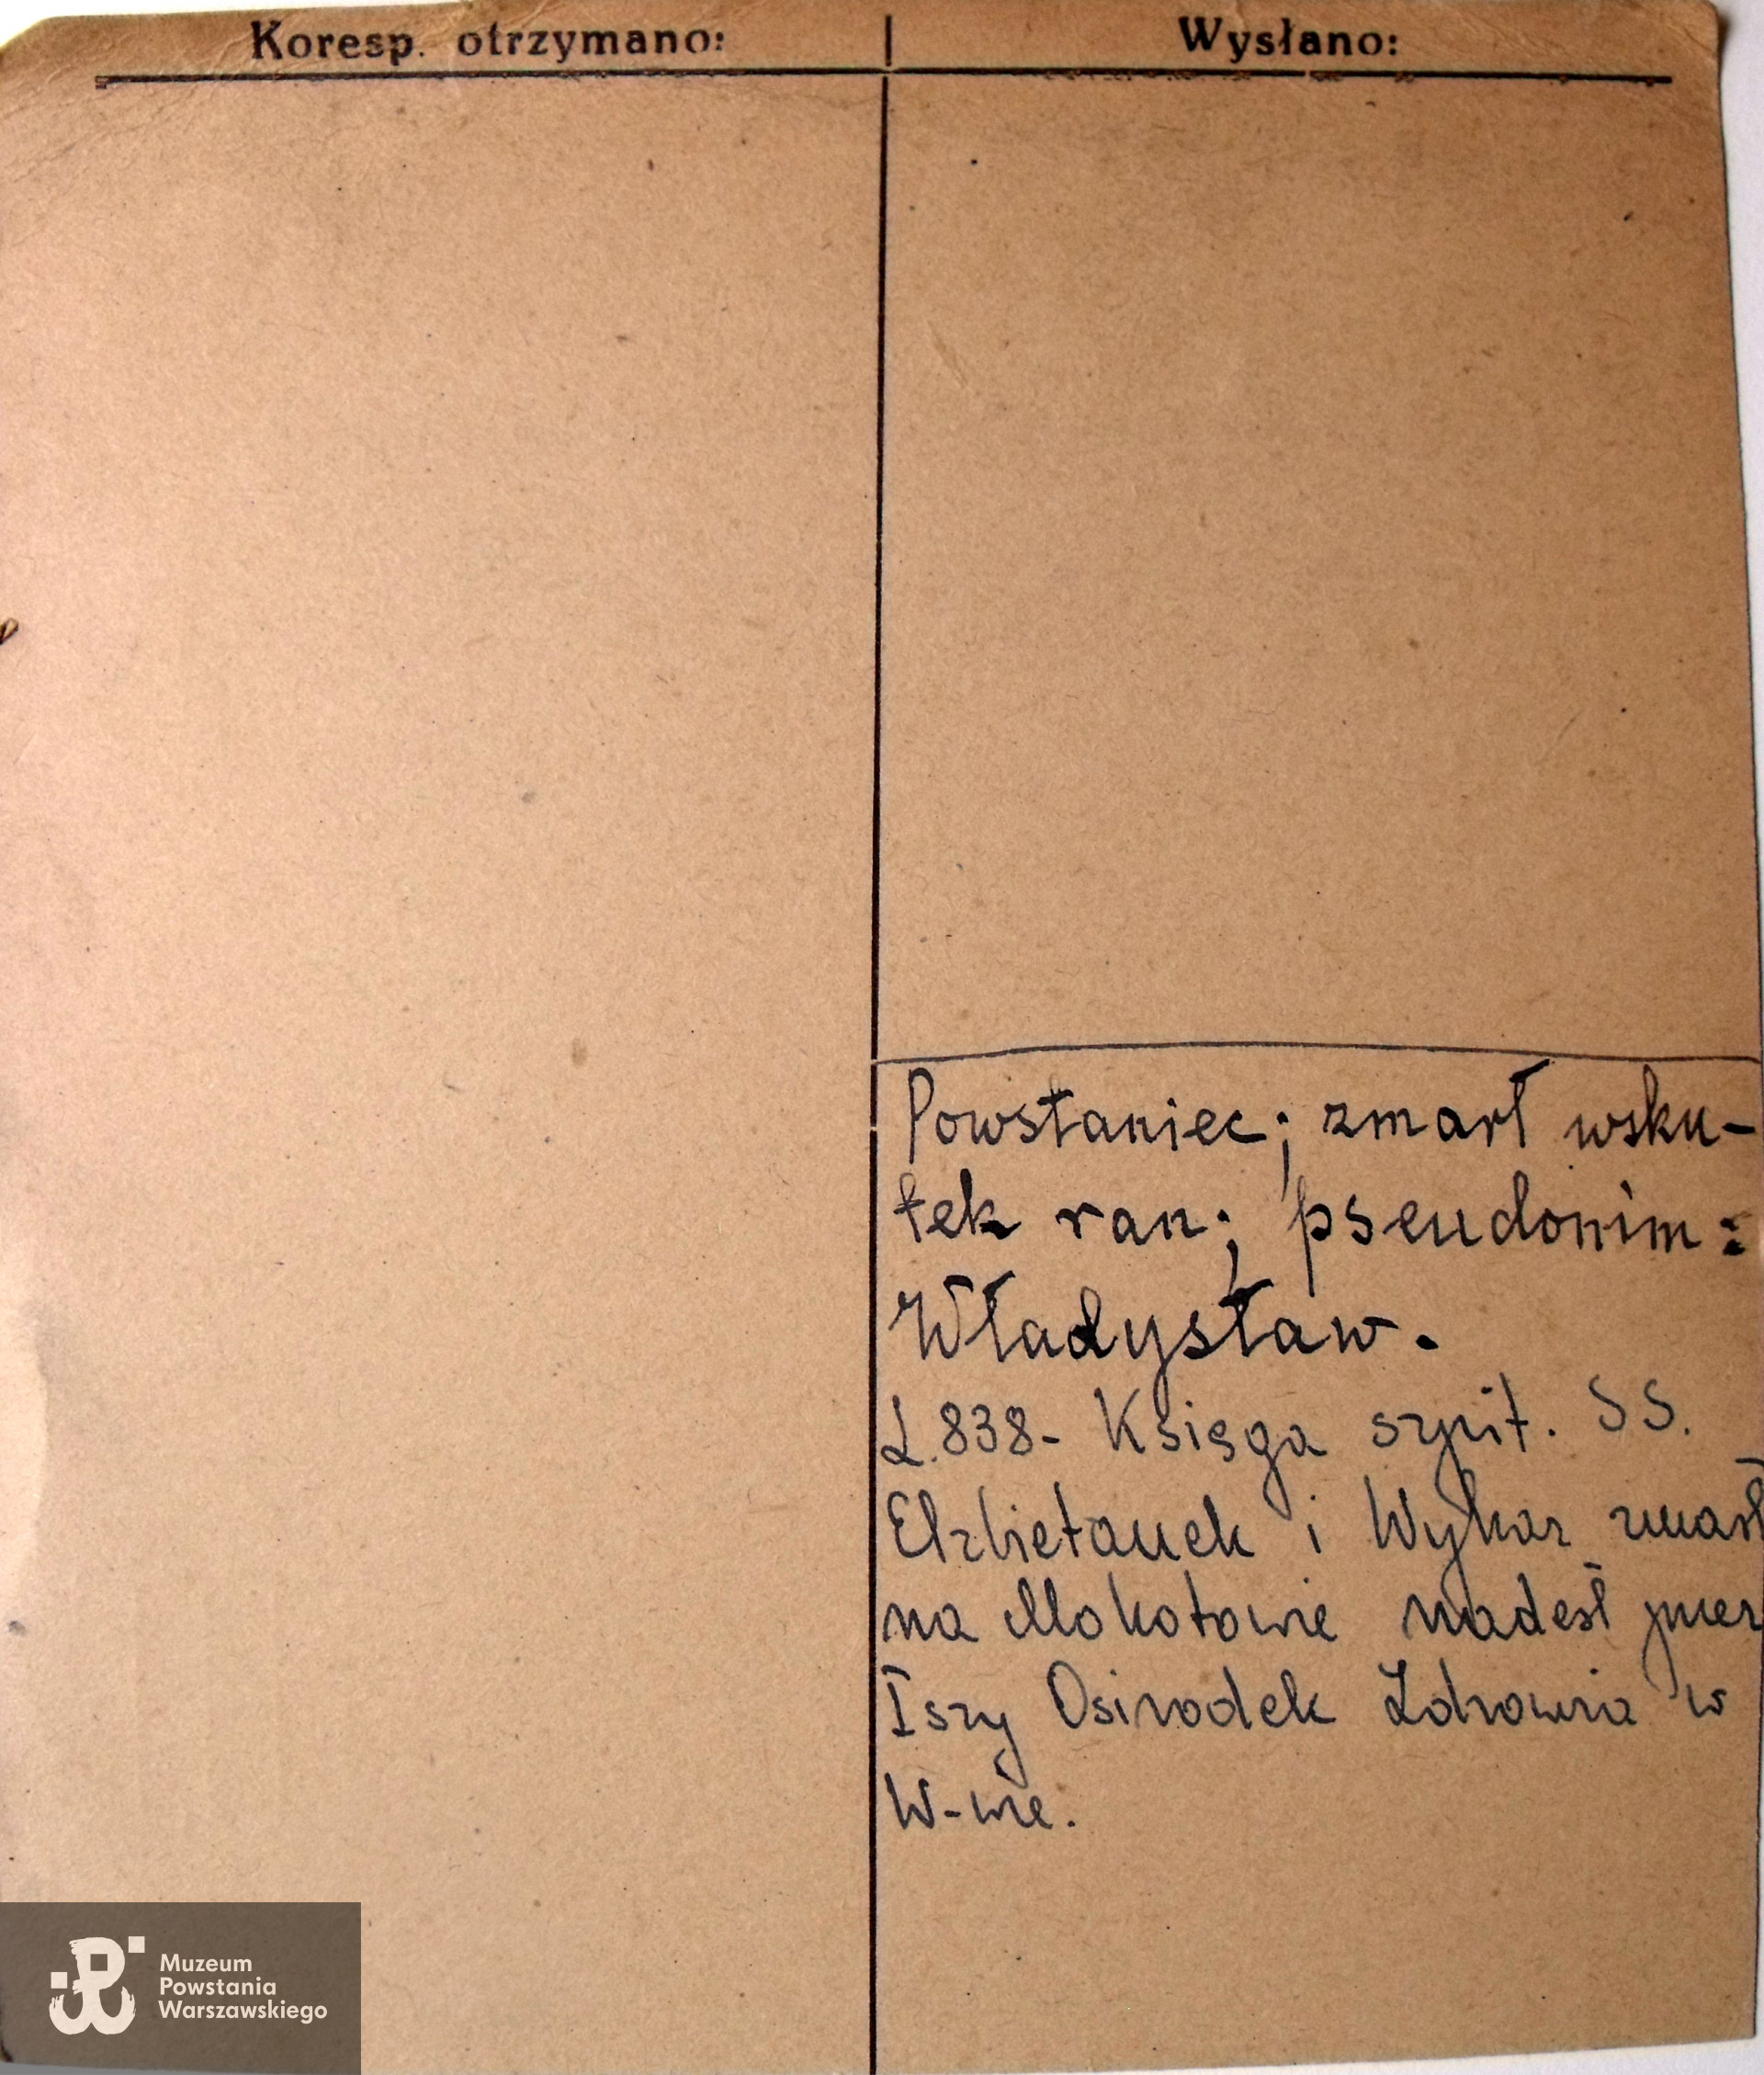 Koresp. otrzymano:
Wysłano:
Powstaniec; zmarł wsku-
tek ran; pseudonim:
Władysław.
L.838- Księga szpit. SS.
Elżbietanek i Wykaz zmarł
na Mokotowie nadesł przez
Iszy Osirodek Zdrowia w
W-wie.
Muzeum
Powstania
Warszawskiego